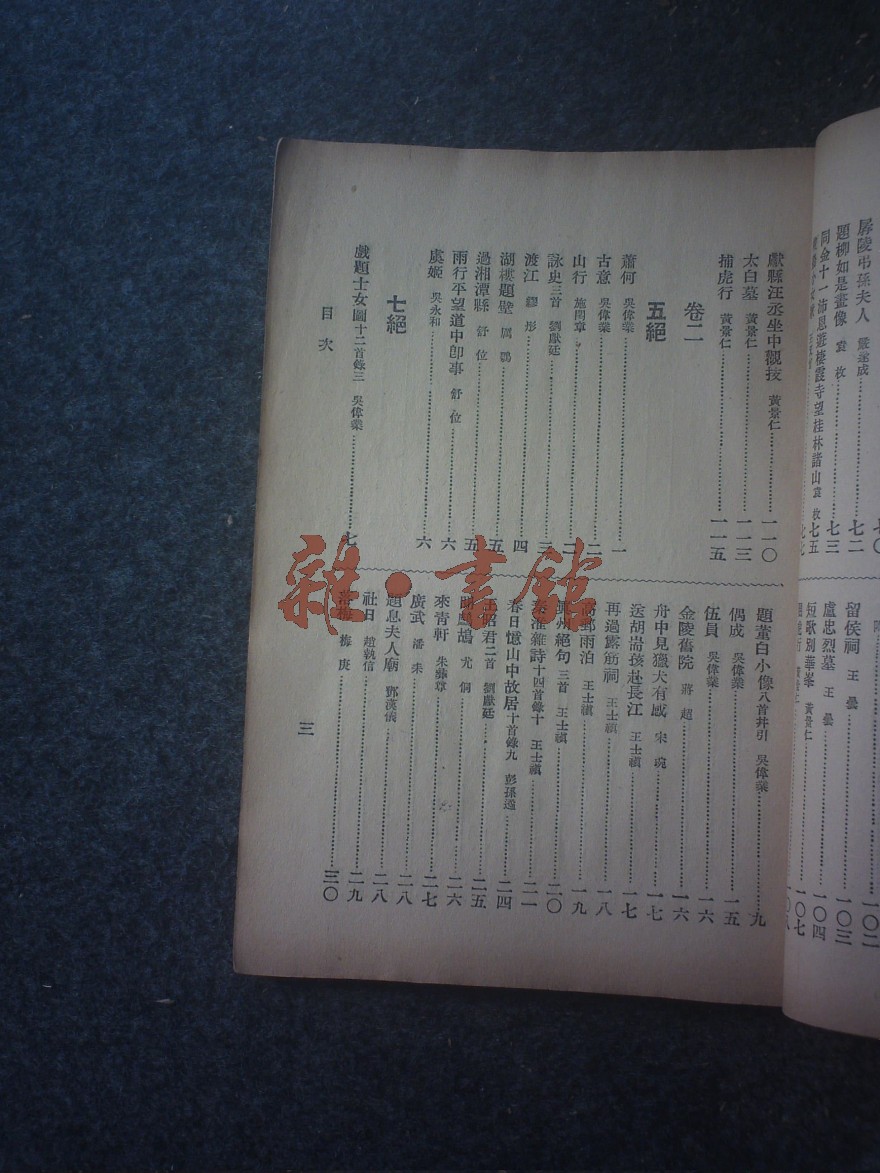 孱陵弔孫夫人 嚴遂成 七〇
題柳如是畫像 袁枚 七二
同金十一沛恩遊棲霞寺望桂林諸山 袁枚 七三
七五
七七
一〇二
留侯祠 王曇 一〇三
盧忠烈墓 王曇 一〇四
短歌別華峯 黃景仁 一〇七
獻縣汪丞坐中觀技 黃景仁 一一〇
太白墓 黃景仁 一一三
捕虎行 黃景仁 一一五
卷二
五絕
蕭何 吳偉業 一
古意 吳偉業 二
山行 施閏章 二
詠史三首 劉獻廷 三
渡江 繆彤 四
湖樓題壁 厲鶚 五
過湘潭縣 舒位 五
雨行平望道中卽事 舒位 六
虞姬 吳永和 六
七絕
戲題士女圖十二首錄三 吳偉業 七
題董白小像八首幷引 吳偉業 九
偶成 吳偉業 一五
伍員 吳偉業 一六
金陵舊院 蔣超 一六
舟中見獵犬有感 宋琬 一七
送胡耑孩赴長江 王士禛 一七
再過露筋祠 王士禛 一八
高郵雨泊 王士禛 一九
眞州絕句三首 王士禛 二〇
秦淮雜詩十四首錄十 王士禛 二一
春日憶山中故居十首錄九 彭孫遹 二四
王昭君二首 劉獻廷 二五
聞鷓鴣 尤侗 二六
來靑軒 朱彝尊 二七
廣武 潘耒 二八
題息夫人廟 鄧漢儀 二八
社日 趙執信 二九
落梅 梅庚 三〇
目次
三
雜·書館